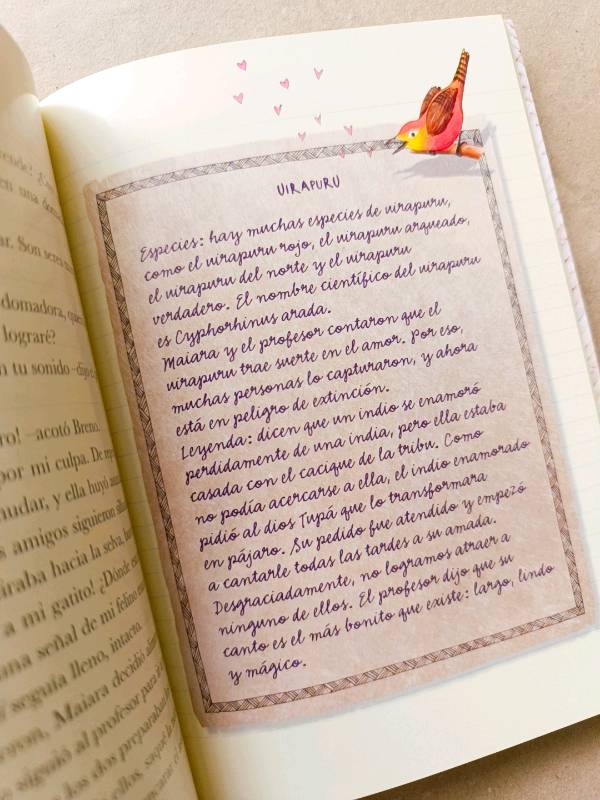 una dom
ar. Son seres
domadora, quier
lograré?
n tu sonido –dijo
ro! –acotó Breno.
por mi culpa. De
mudar, y ella huyó
s amigos siguieron
iraba hacia la selva,
a mi gatito! ¿Dónde
una señal de mi felino
seguía lleno, intacto.
oron, Maiara decidió
siguió al profesor para
los dos
ellos,
UIRAPURU
Especies: hay muchas especies de uirapuru,
como el uirapuru rojo, el uirapuru arqueado,
el uirapuru del norte y el uirapuru
verdadero. El nombre científico del uirapuru
es Cyphorhinus arada.
Maiara y el profesor contaron que el
uirapuru trae suerte en el amor. Por eso,
muchas personas lo capturaron, y ahora
está en peligro de extinción.
Leyenda: dicen que un indio se enamoró
perdidamente de una india, pero ella estaba
casada con el cacique de la tribu. Como
no podía acercarse a ella, el indio enamorado
pidió al dios Tupá que lo transformara
en pájaro. Su pedido fue atendido y empezó
a cantarle todas las tardes a su amada.
Desgraciadamente, no logramos atraer a
ninguno de ellos. El profesor dijo que su
canto es el más bonito que existe: largo, lindo
y mágico.